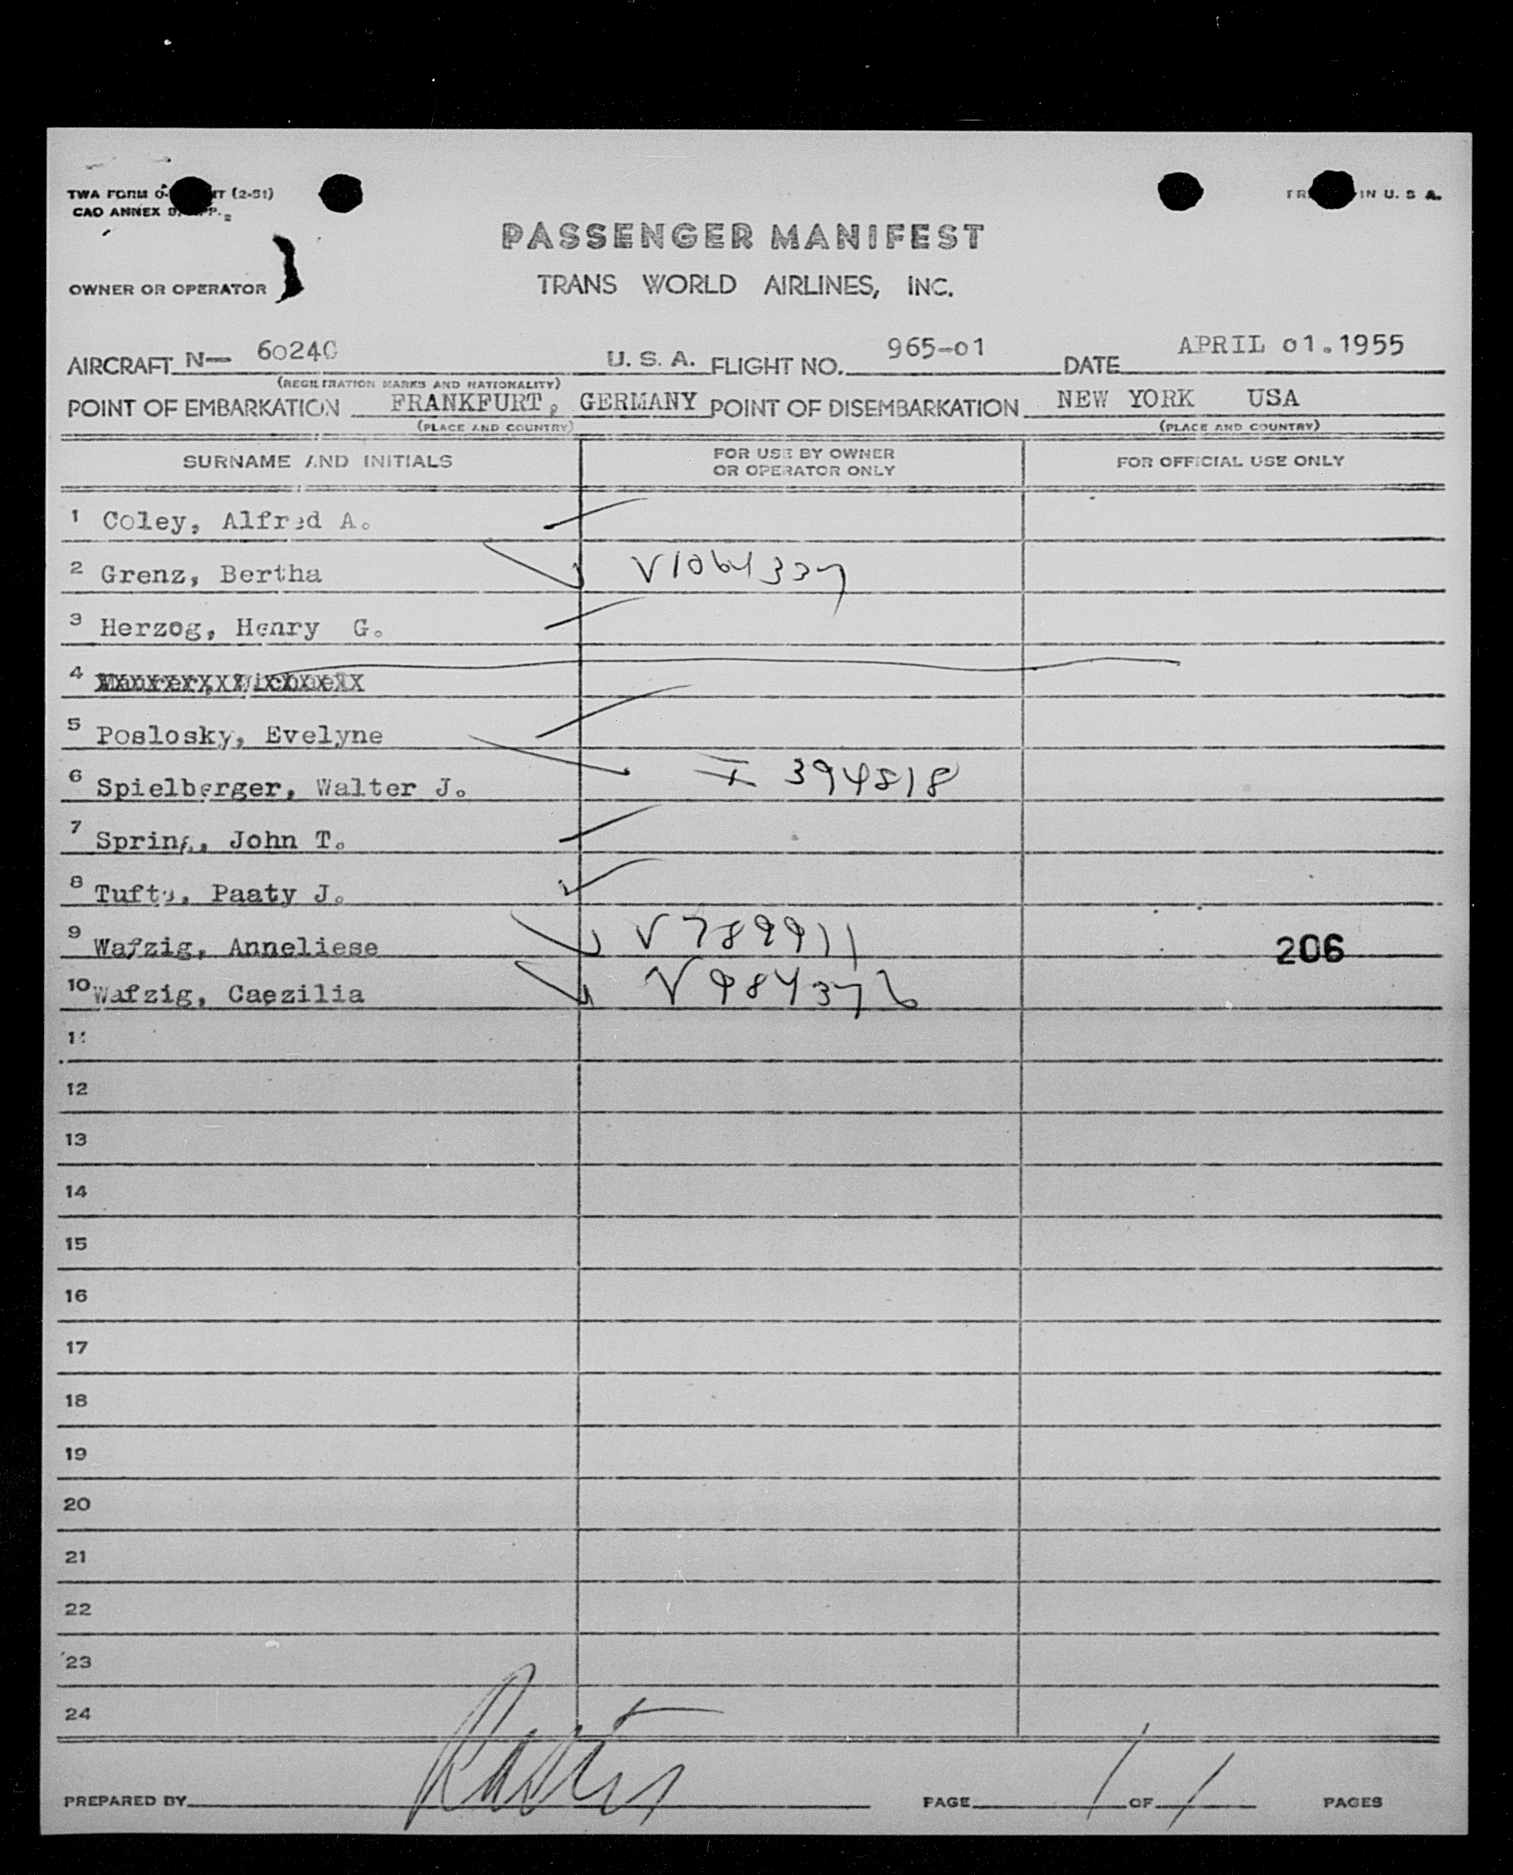 TWA FORM O- (2-51)
CAO ANNEX
IN U. S. A.
PASSENGER MANIFEST
TRANS WORLD AIRLINES, INC.
OWNER OR OPERATOR
AIRCRAFT N— 6024C U. S. A. FLIGHT NO. 965-01 DATE APRIL 01.1955
(REGISTRATION MARKS AND NATIONALITY)
POINT OF EMBARKATION FRANKFURT, GERMANY POINT OF DISEMBARKATION NEW YORK USA
(PLACE AND COUNTRY) (PLACE AND COUNTRY)
SURNAME AND INITIALS FOR USE BY OWNER OR OPERATOR ONLY FOR OFFICIAL USE ONLY
1 Coley, Alfred A.
2 Grenz, Bertha V1064337
3 Herzog, Henry G.
4
5 Poslosky, Evelyne
6 Spielberger, Walter J. I 394818
7 Spring, John T.
8 Tufts, Paaty J.
9 Wafzig, Anneliese V789911 206
10 Wafzig, Caezilia V984376
11
12
13
14
15
16
17
18
19
20
21
22
23
24
PREPARED BY PAGE 1 OF 1 PAGES